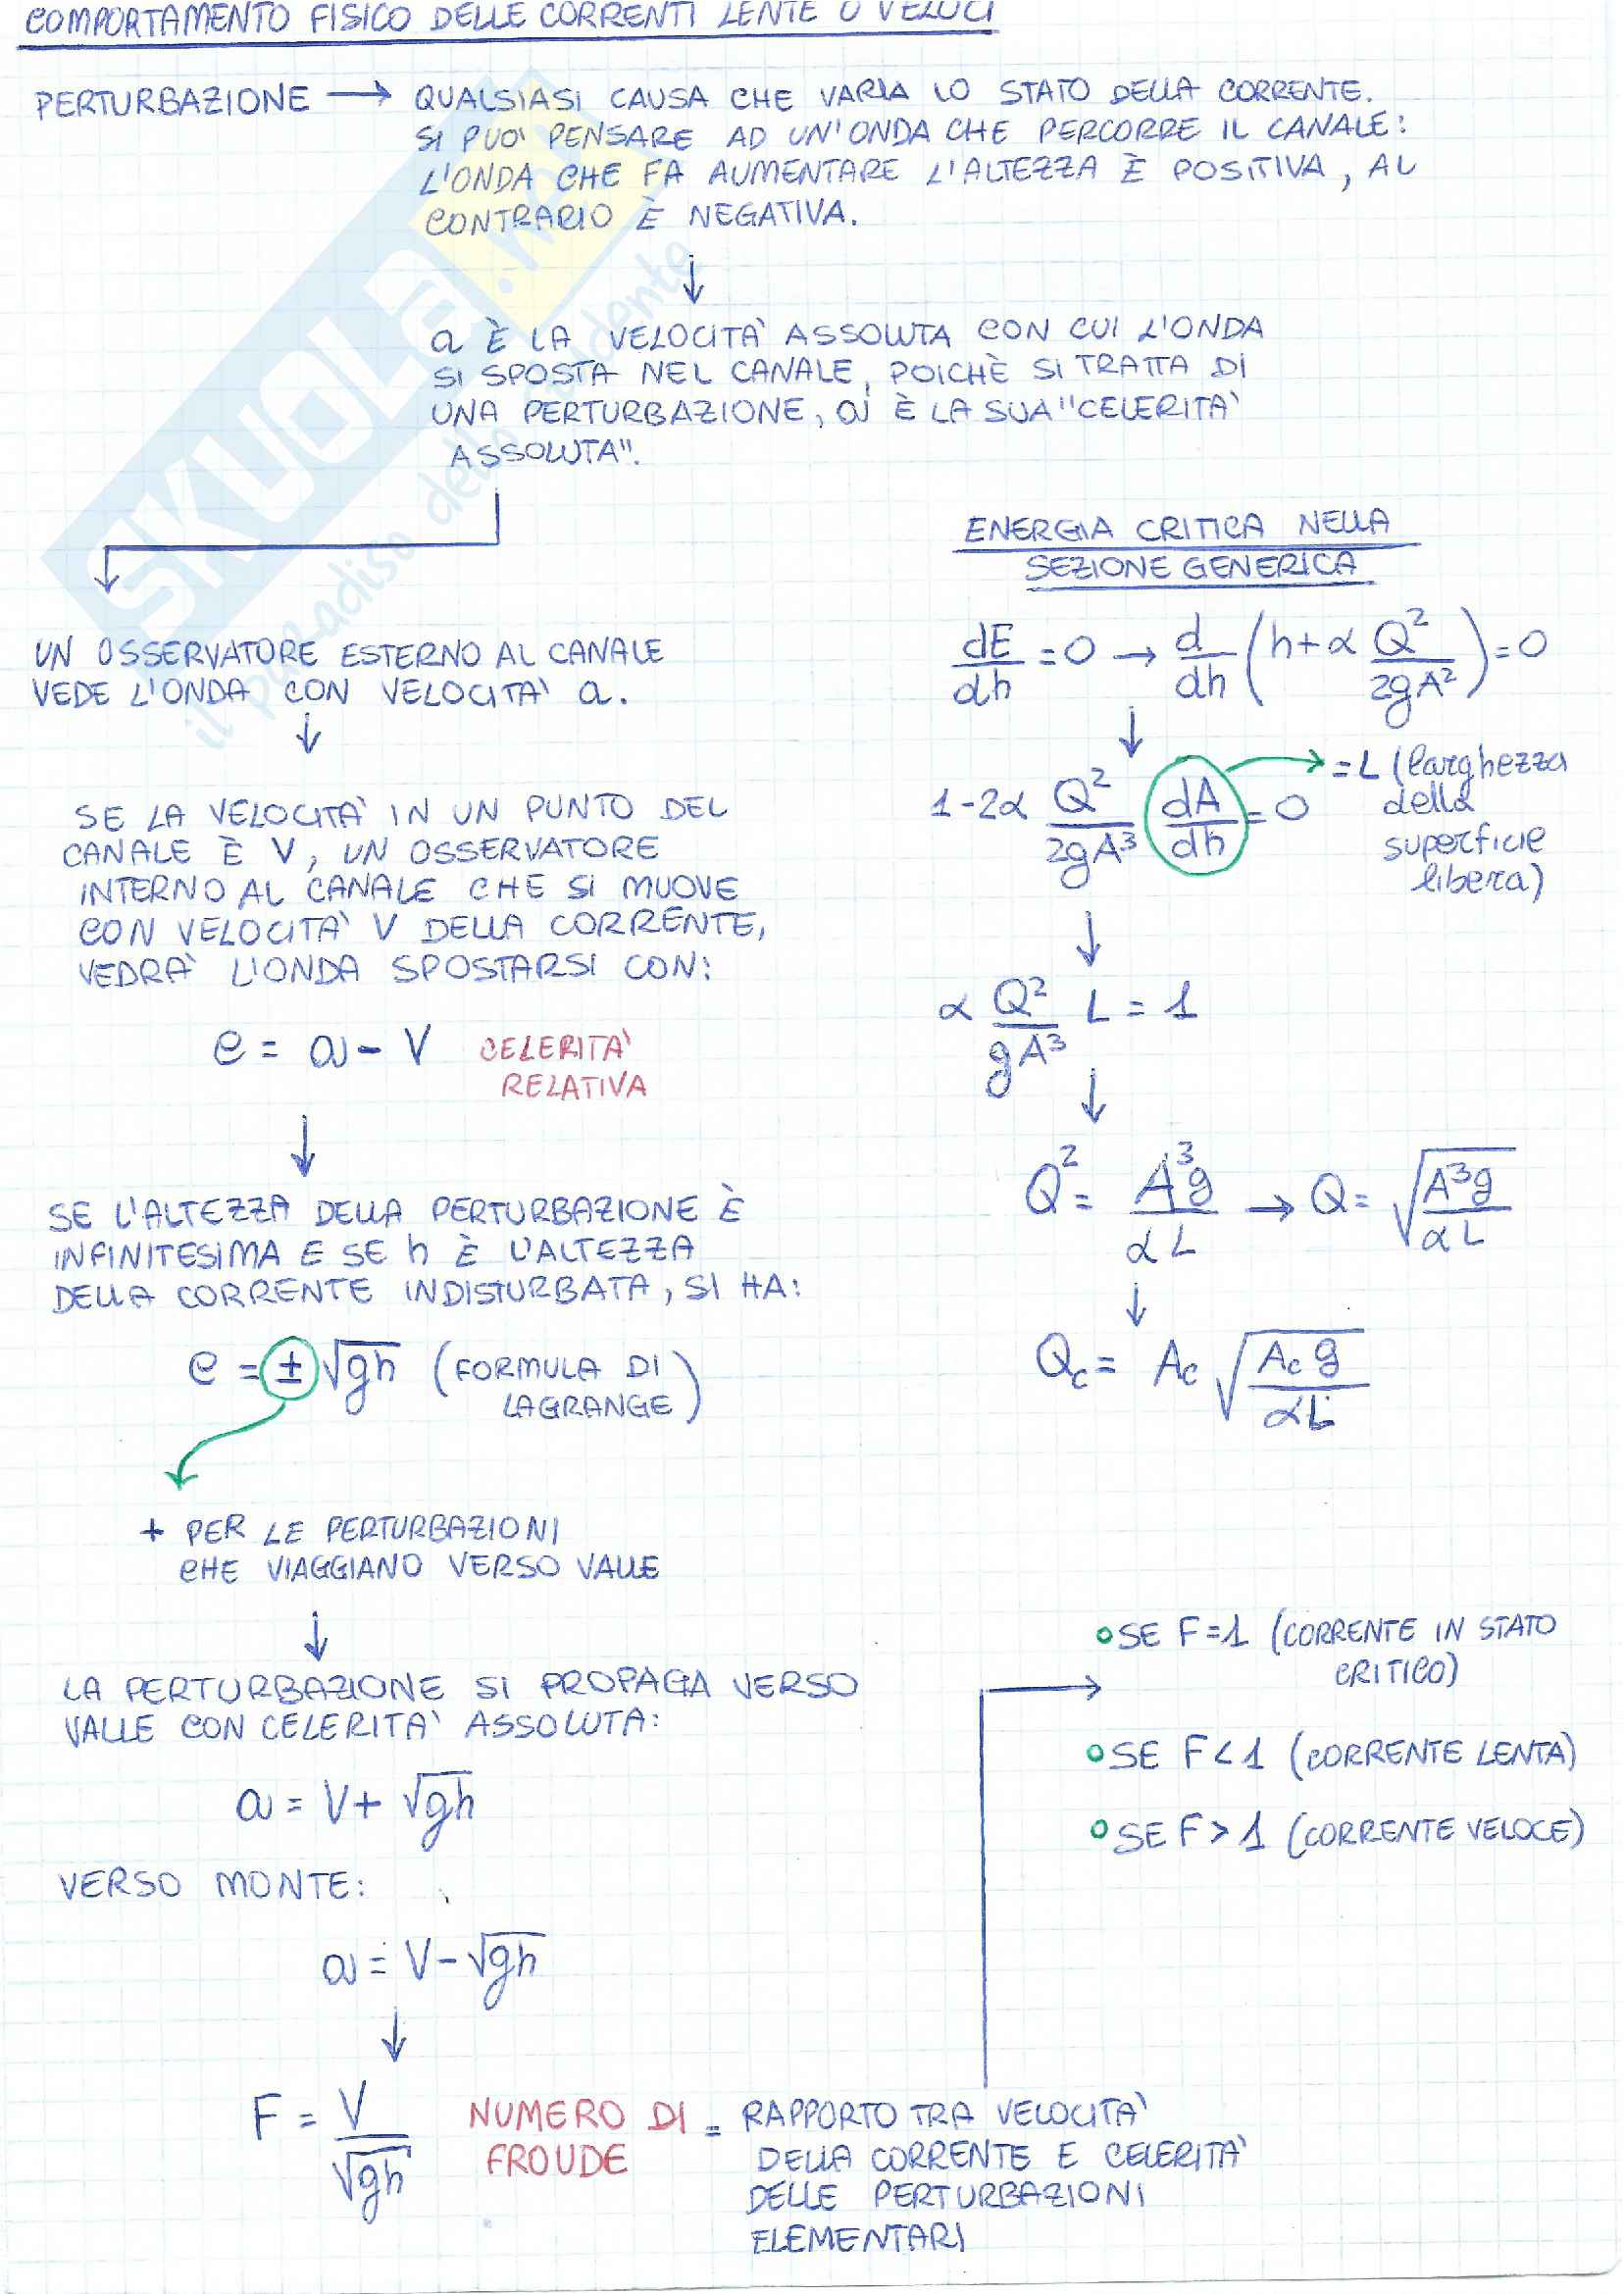 COMPORTAMENTO FISICO DELLE CORRENTI LENTE O VELOCI
PERTURBAZIONE → QUALSIASI CAUSA CHE VARIA LO STATO DELLA CORRENTE.
SI PUO' PENSARE AD UN'ONDA CHE PERCORRE IL CANALE:
L'ONDA CHE FA AUMENTARE L'ALTEZZA È POSITIVA, AL
CONTRARIO È NEGATIVA.
↓
a È LA VELOCITA' ASSOLUTA CON CUI L'ONDA
SI SPOSTA NEL CANALE, POICHÈ SI TRATTA DI
UNA PERTURBAZIONE, a È LA SUA "CELERITA'
ASSOLUTA".
UN OSSERVATORE ESTERNO AL CANALE
VEDE L'ONDA CON VELOCITA' a.
↓
SE LA VELOCITA' IN UN PUNTO DEL
CANALE È V, UN OSSERVATORE
INTERNO AL CANALE CHE SI MUOVE
CON VELOCITA' V DELLA CORRENTE,
VEDRA' L'ONDA SPOSTARSI CON:
c = a - V CELERITA'
RELATIVA
↓
SE L'ALTEZZA DELLA PERTURBAZIONE È
INFINITESIMA E SE h È L'ALTEZZA
DELLA CORRENTE INDISTURBATA, SI HA:
c = ± √gh (FORMULA DI
LAGRANGE)
+ PER LE PERTURBAZIONI
CHE VIAGGIANO VERSO VALLE
↓
LA PERTURBAZIONE SI PROPAGA VERSO
VALLE CON CELERITA' ASSOLUTA:
a = V + √gh
VERSO MONTE:
a = V - √gh
↓
F = V/√gh NUMERO DI FROUDE = RAPPORTO TRA VELOCITA'
DELLA CORRENTE E CELERITA'
DELLE PERTURBAZIONI
ELEMENTARI
ENERGIA CRITICA NELLA
SEZIONE GENERICA
dE/dh = 0 → d/dh (h + α Q²/2gA²) = 0
↓
1 - 2α Q²/2gA³ dA/dh = 0 → = L (larghezza
della
superficie
libera)
↓
α Q²/gA³ L = 1
↓
Q² = A³g/αL → Q = √A³g/αL
↓
Qc = Ac √Ac g/αL
SE F = 1 (CORRENTE IN STATO
CRITICO)
SE F < 1 (CORRENTE LENTA)
SE F > 1 (CORRENTE VELOCE)
SKUOLA.net
il paradiso dello studente